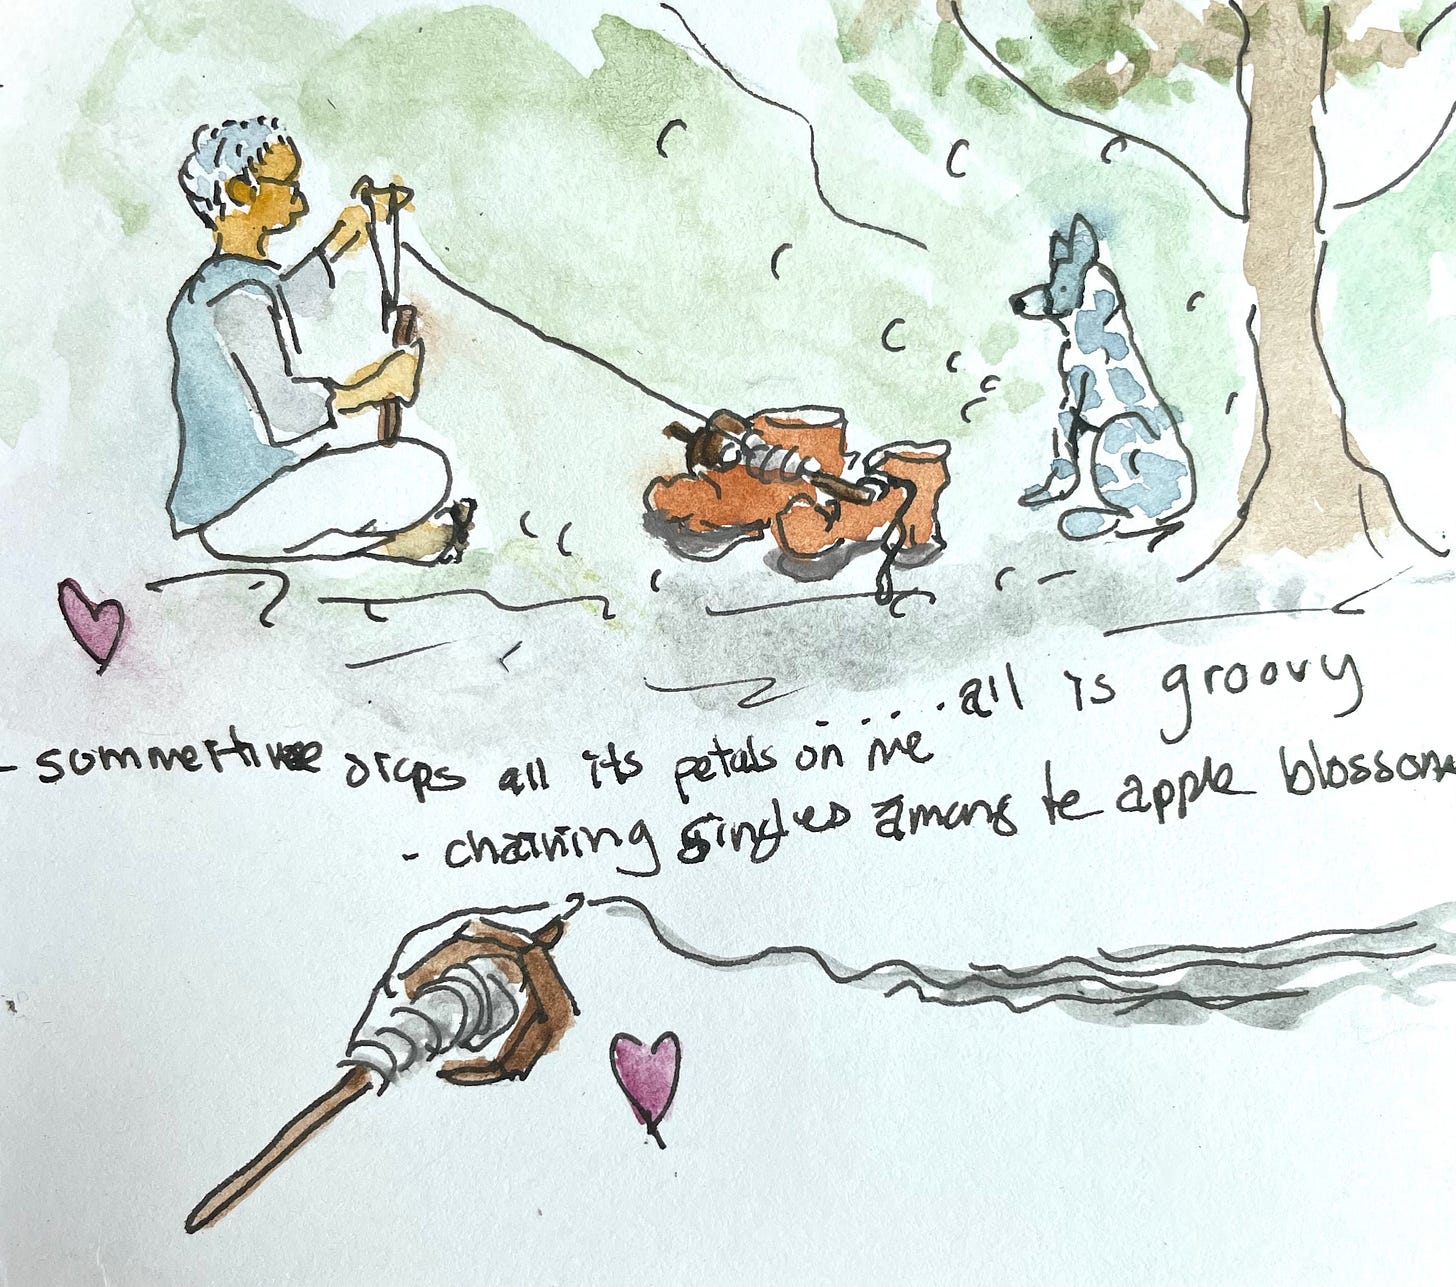 - sommertime drops all its petals on me .....all is groovy
- chaining singles among te apple blossom